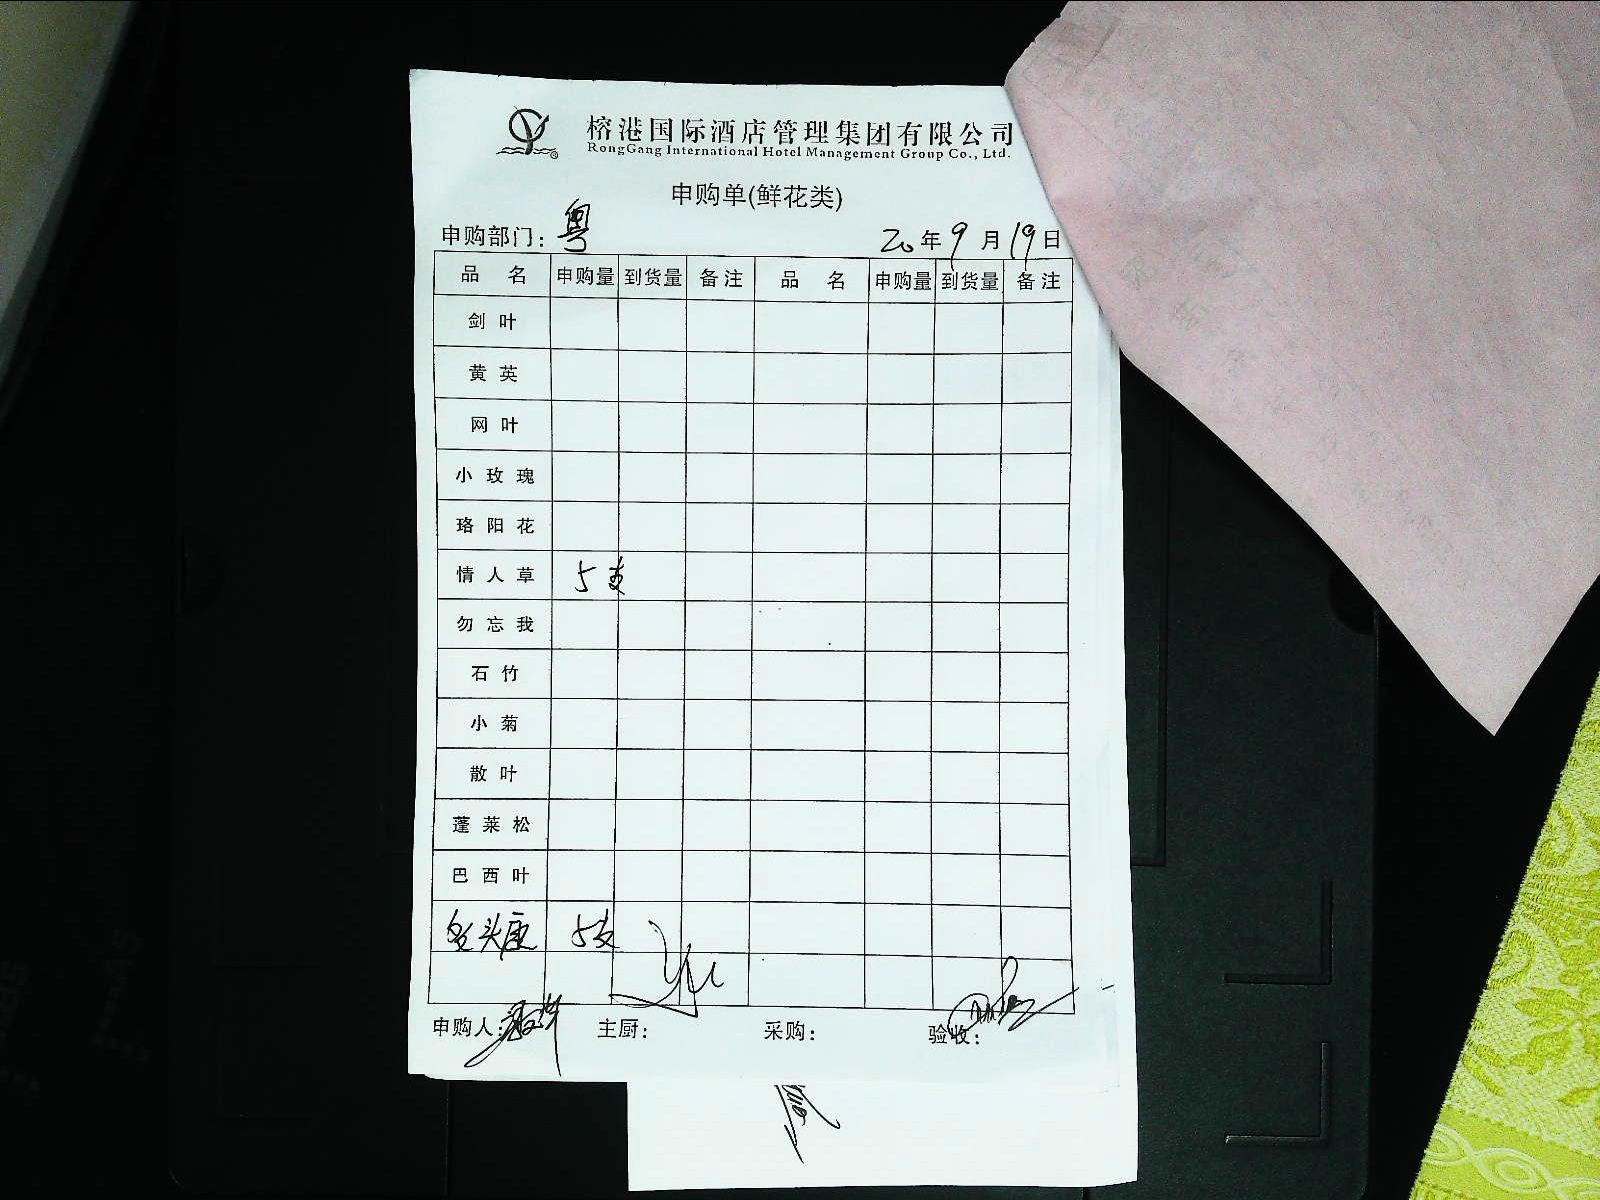 榕港国际酒店管理集团有限公司
RongGang International Hotel Management Group Co., Ltd.
申购单(鲜花类)
申购部门: 粤 20年9月19日
品 名 申购量 到货量 备注 品 名 申购量 到货量 备注
剑叶
黄英
网叶
小玫瑰
珞阳花
情人草 5支
勿忘我
石竹
小菊
散叶
蓬莱松
巴西叶
多头康 5支
申购人: 主厨: 采购: 验收: